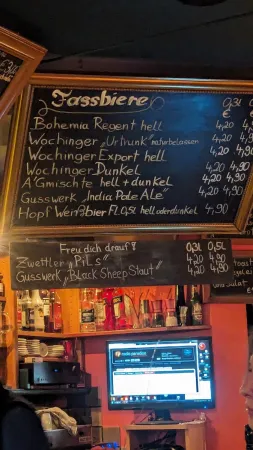 Fassbiere 0,3l 0,5l
€ €
Bohemia Regent hell 4,20 4,90
Wochinger „Urtrunk" naturbelassen 4,20 4,90
Wochinger Export hell 4,20 4,90
Wochinger Dunkel 4,20 4,90
A'Gmischte hell + dunkel 4,20 4,90
Gusswerk „India Pale Ale" 4,20 4,90
Hopf Weißbier Fl. 0,5l hell oder dunkel 4,90
Freu dich drauf! 0,3l 0,5l
Zwettler „Pils" 4,20 4,90
Gusswerk „Black Sheep Stout" 4,20 4,90